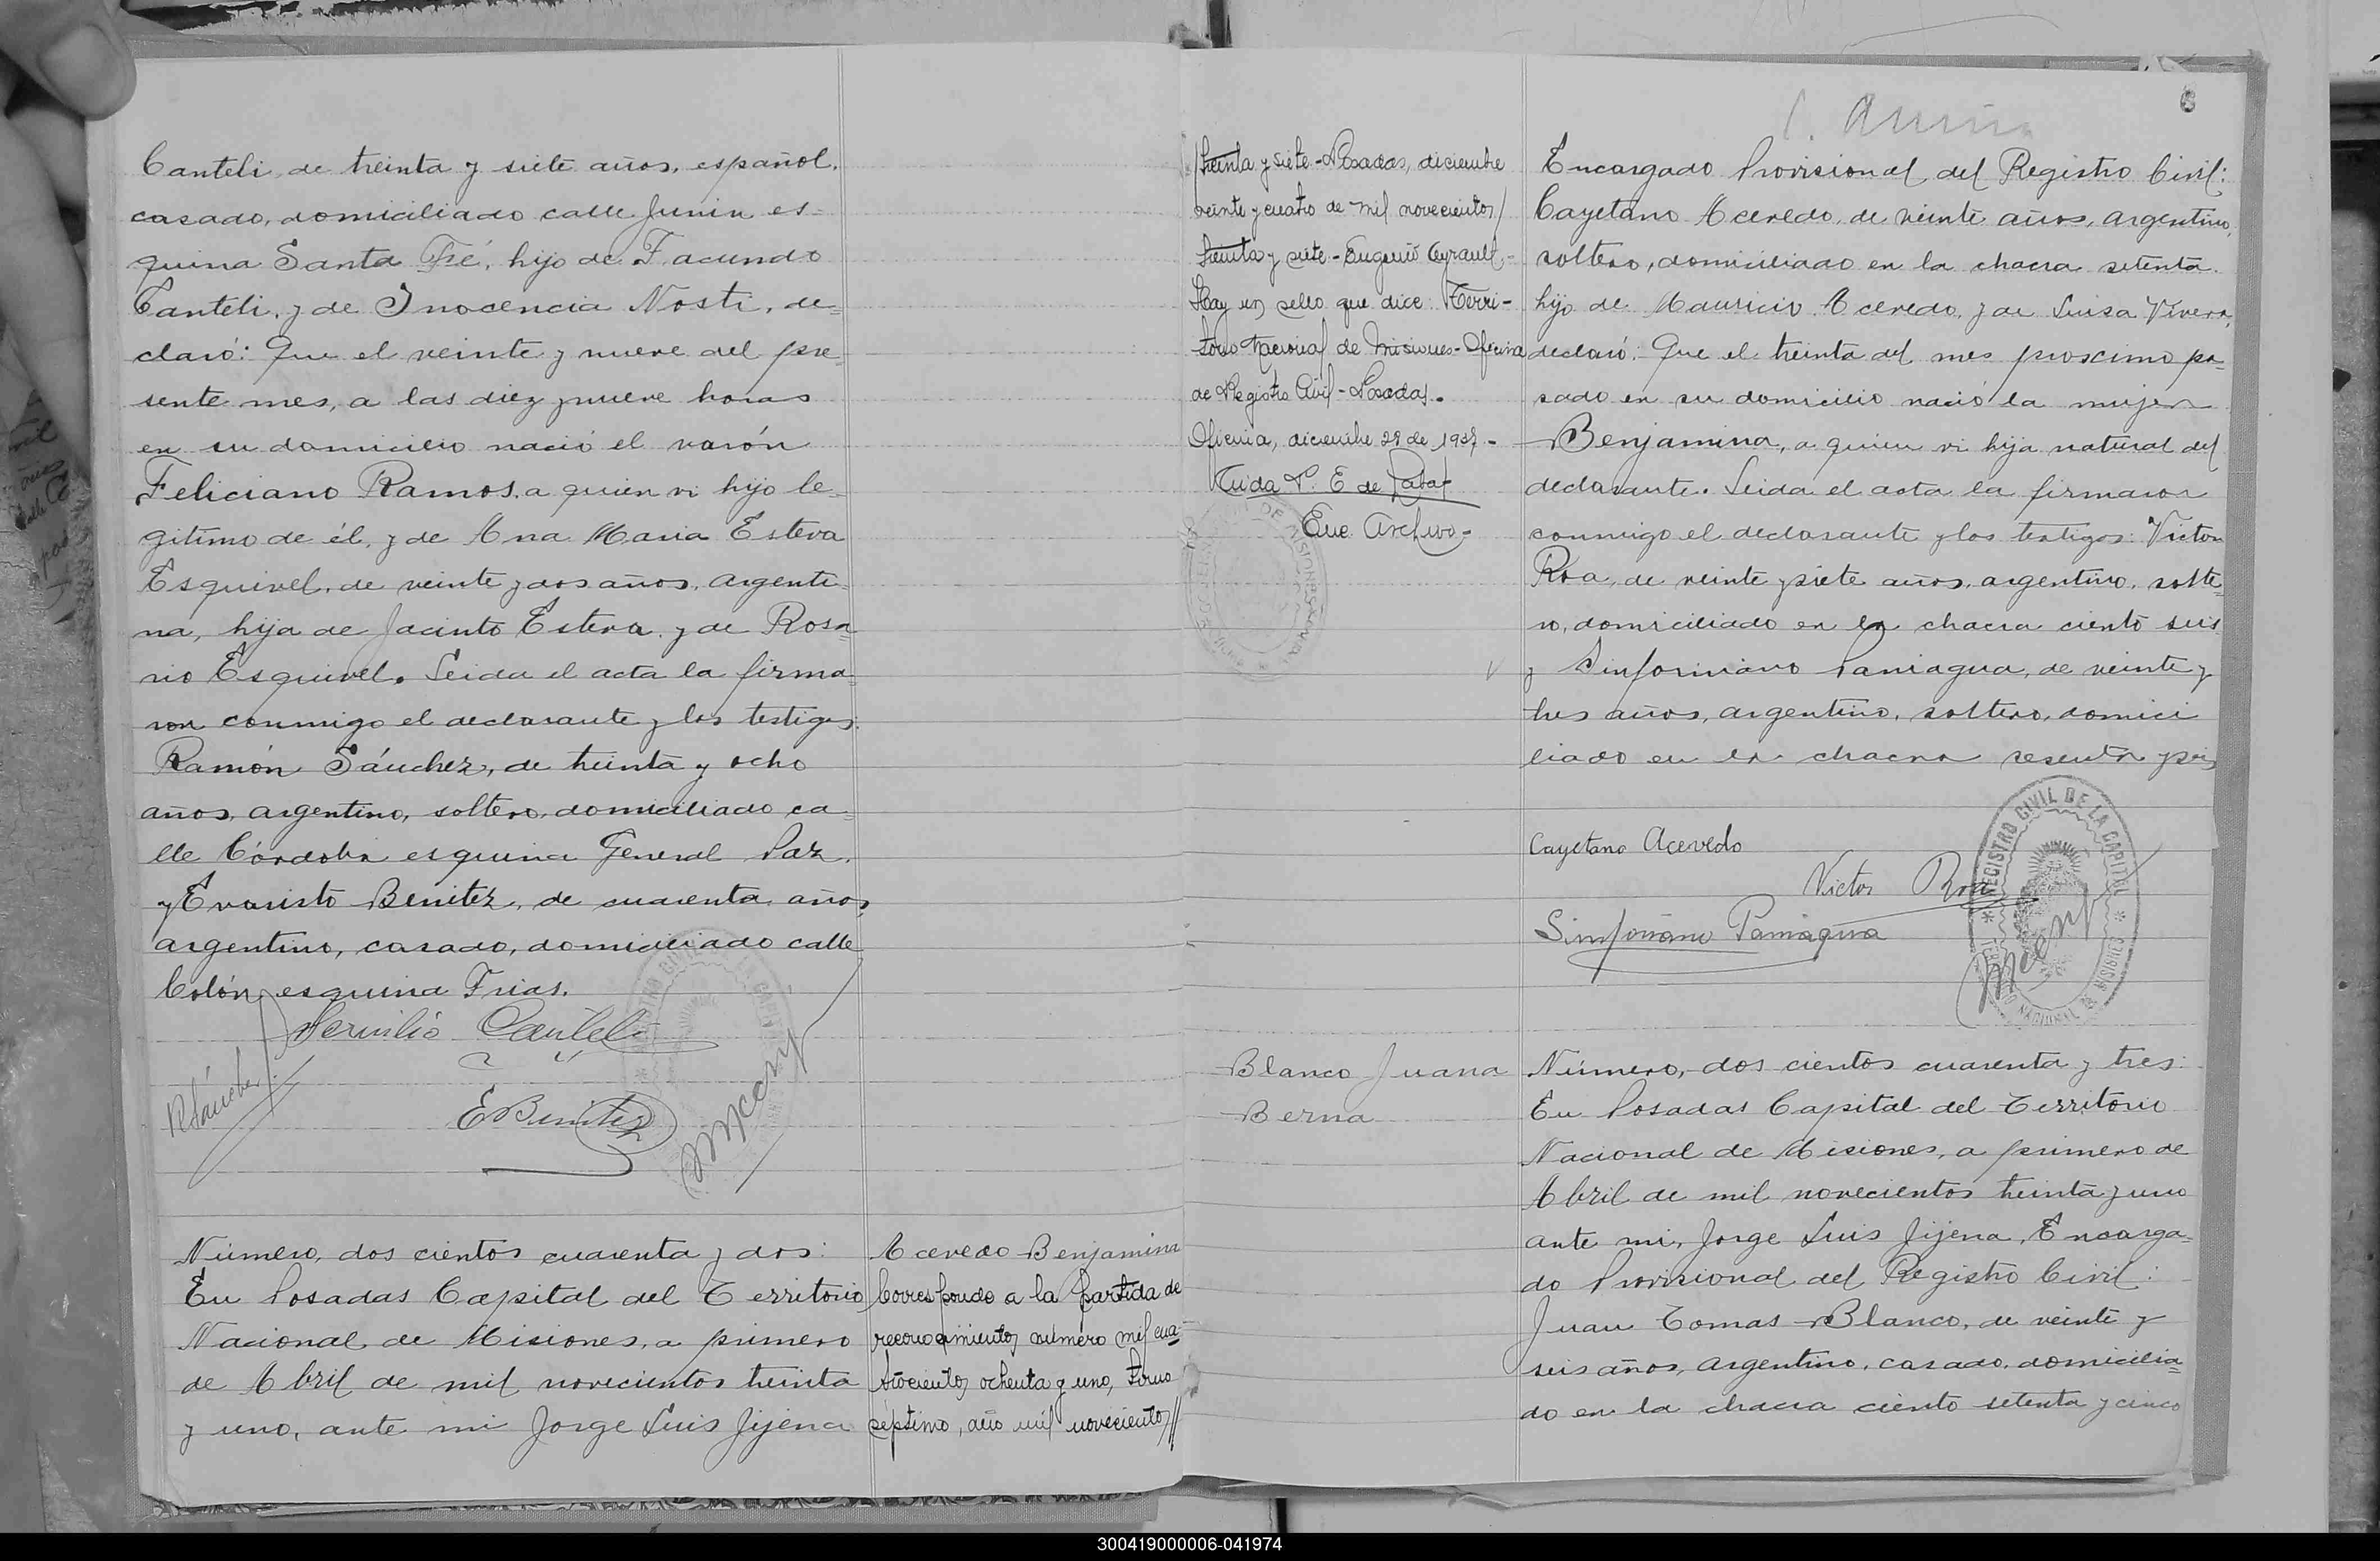 Canteli, de treinta y siete años, español,
casado, domiciliado calle Junin es-
quina Santa Fé, hijo de Facundo
Canteli, y de Inocencia Nosti, de-
claró: Que el veinte y nueve del pre-
sente mes, a las diez y nueve horas
en su domicilio nació el varón
Feliciano Ramos, a quien vi hijo le-
gitimo de él, y de Ana Maria Esteva
Esquivel, de veinte y dos años, argenti-
na, hija de Jacinto Esteva, y de Rosa-
rio Esquivel. Leida el acta la firma-
ron conmigo el declarante y los testigos:
Ramón Sánchez, de treinta y ocho
años, argentino, soltero, domiciliado ca-
lle Córdoba esquina General Paz,
y Evaristo Benitez, de cuarenta años,
argentino, casado, domiciliado calle
Colón, esquina Frias.
Canteli
RSánchez
EBenitez
Número, dos cientos cuarenta y dos:
En Posadas Capital del Territorio
Nacional de Misiones, a primero
de Abril de mil novecientos treinta
y uno, ante mi Jorge Luis Jijena
Acevedo Benjamina
Corresponde a la partida de
reconocimientos número mil cua-
trocientos ochenta y uno, tomo
séptimo, año mil novecientos//
treinta y siete - Posadas, diciembre
veinte y cuatro de mil novecientos/
treinta y siete - Eugenio Eyrault -
Hay un sello que dice: Terri-
torio Nacional de Misiones - Oficina
de Registro Civil - Posadas.
Oficina, diciembre 28 de 1937 -
E. de
Enc. Archivo -
6
Encargado Provisional del Registro Civil:
Cayetano Acevedo, de veinte años, argentino,
soltero, domiciliado en la chacra setenta,
hijo de Mauricio Acevedo, y de Luisa Vivero,
declaró: Que el treinta del mes proscimo pa-
sado en su domicilio nació la mujer
Benjamina, a quien vi hija natural del
declarante. Leida el acta la firmaron
conmigo el declarante y los testigos: Victor
Roa, de veinte y siete años, argentino, solte-
ro, domiciliado en la chacra ciento seis
y Sinforiano Paniagua, de veinte y
tres años, argentino, soltero, domici
liado en la chacra sesenta y seis
Cayetano Acevedo
Victor Roa
Sinforiano Paniagua
REGISTRO CIVIL DE LA CAPITAL
TERRITORIO NACIONAL DE MISIONES
Blanco Juana
Berna
Número, dos cientos cuarenta y tres:
En Posadas Capital del Territorio
Nacional de Misiones, a primero de
Abril de mil novecientos treinta y uno
ante mi, Jorge Luis Jijena, Encarga-
do Provisional del Registro Civil:
Juan Tomas Blanco, de veinte y
seis años, argentino, casado, domicilia-
do en la chacra ciento setenta y cinco
300419000006-041974